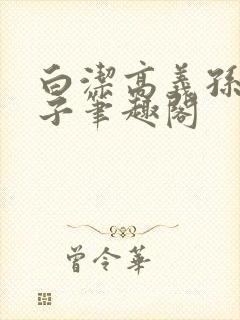 白潔高義孫
子筆趣閣
曾令華